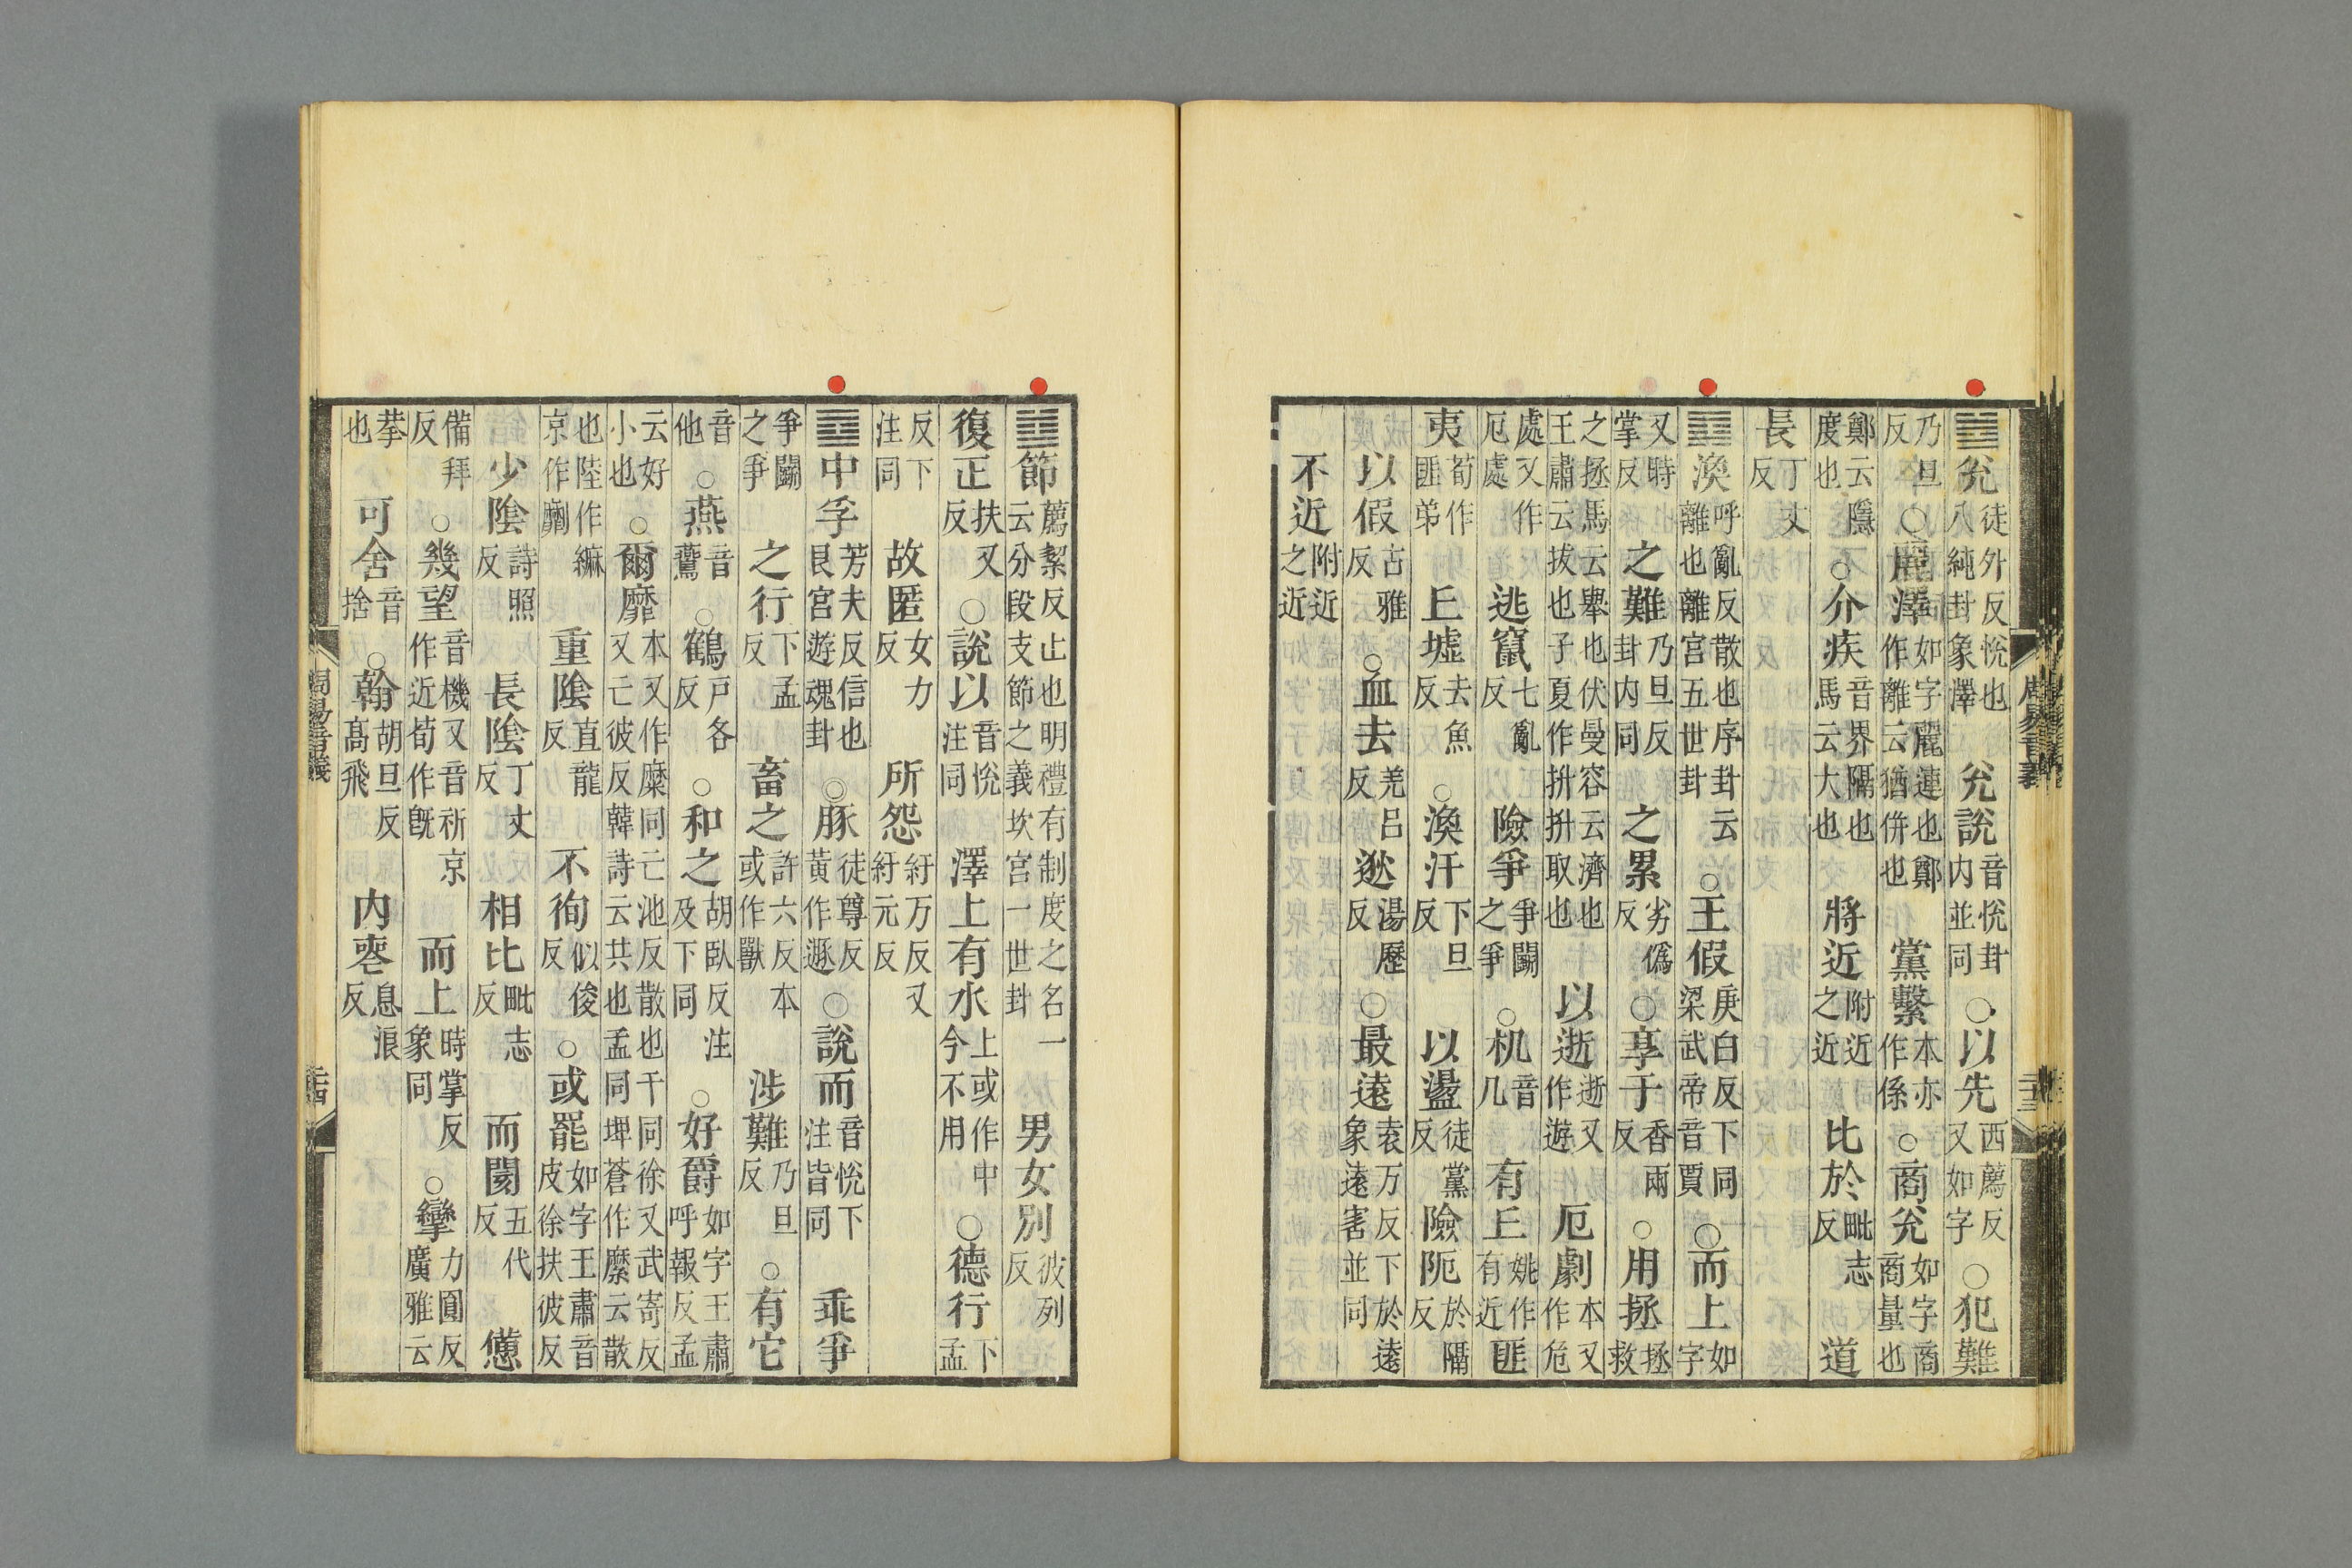 周易音義 二十三
䷹兊徒外反悅也八純卦象澤 兊說音悅卦内並同○以先西薦反又如字○犯難
乃旦反○麗澤如字麗連也鄭作離云猶併也 黨繫本亦作係○商兊如字商商量也
鄭云隱度也○介疾音界隔也馬云大也 將近附近之近 比於毗志反 道
長丁丈反
䷺渙呼亂反散也序卦云離也離宮五世卦○王假庚白反下同梁武帝音賈○而上如字
又時掌反 之難乃旦反卦内同 之累劣僞反○享于香兩反○用拯拯救
之拯馬云舉也伏曼容云濟也王肅云拔也子夏作抍抍取也 以逝逝又作遊 厄劇本又作危
處又作厄處 逃竄七亂反 險爭爭鬭之爭○机音几 有丘姚作有近匪
夷荀作匪弟 丘墟去魚反○渙汗下旦反 以盪徒黨反 險阨於隔反
以假古雅反○血去羌呂反 逖湯歷反○最遠袁万反下於遠象遠害並同
不近附近之近
䷻節薦絜反止也明禮有制度之名一云分段支節之義坎宮一世卦 男女別彼列反
復正扶又反○說以音悅注同 澤上有水上或作中今不用○德行下孟
反下注同 故匿女力反 所怨紆万反又紆元反
䷼中孚芳夫反信也艮宮遊魂卦○豚徒尊反黃作遯○說而音悅下注皆同 乖爭
爭鬭之爭 之行下孟反 畜之許六反本或作獸 涉難乃旦反○有它
音他○燕音鷰○鶴戶各反○和之胡臥反注及下同○好爵如字王肅呼報反孟
云好小也○爾靡本又作糜同亡池反散也干同徐又武寄反又亡彼反韓詩云共也孟同埤蒼作縻云散
也陸作䌕京作劘 重陰直龍反 不徇似俊反○或罷如字王肅音皮徐扶彼反
少陰詩照反 長陰丁丈反 相比毗志反 而閡五代反 憊
備拜反○幾望音機又音祈京作近荀作既 而上時掌反象同○攣力圓反廣雅云
拲也 可舍音捨○翰胡旦反高飛 内喪息浪反
周易音義 二十四